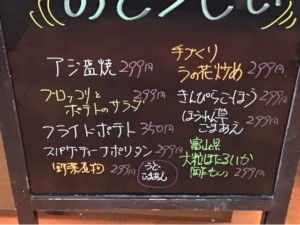 アジ塩焼 299円
ブロッコリと
ポテトのサラダ 299円
フライドポテト 350円
スパゲティーナポリタン 299円
野菜煮物 299円
うど
ごまあえ
手づくり
うの花炒め 299円
きんぴらごぼう 299円
ほうれん草
ごまあえ 299円
富山県
大粒ほたるいか
酢もの 299円